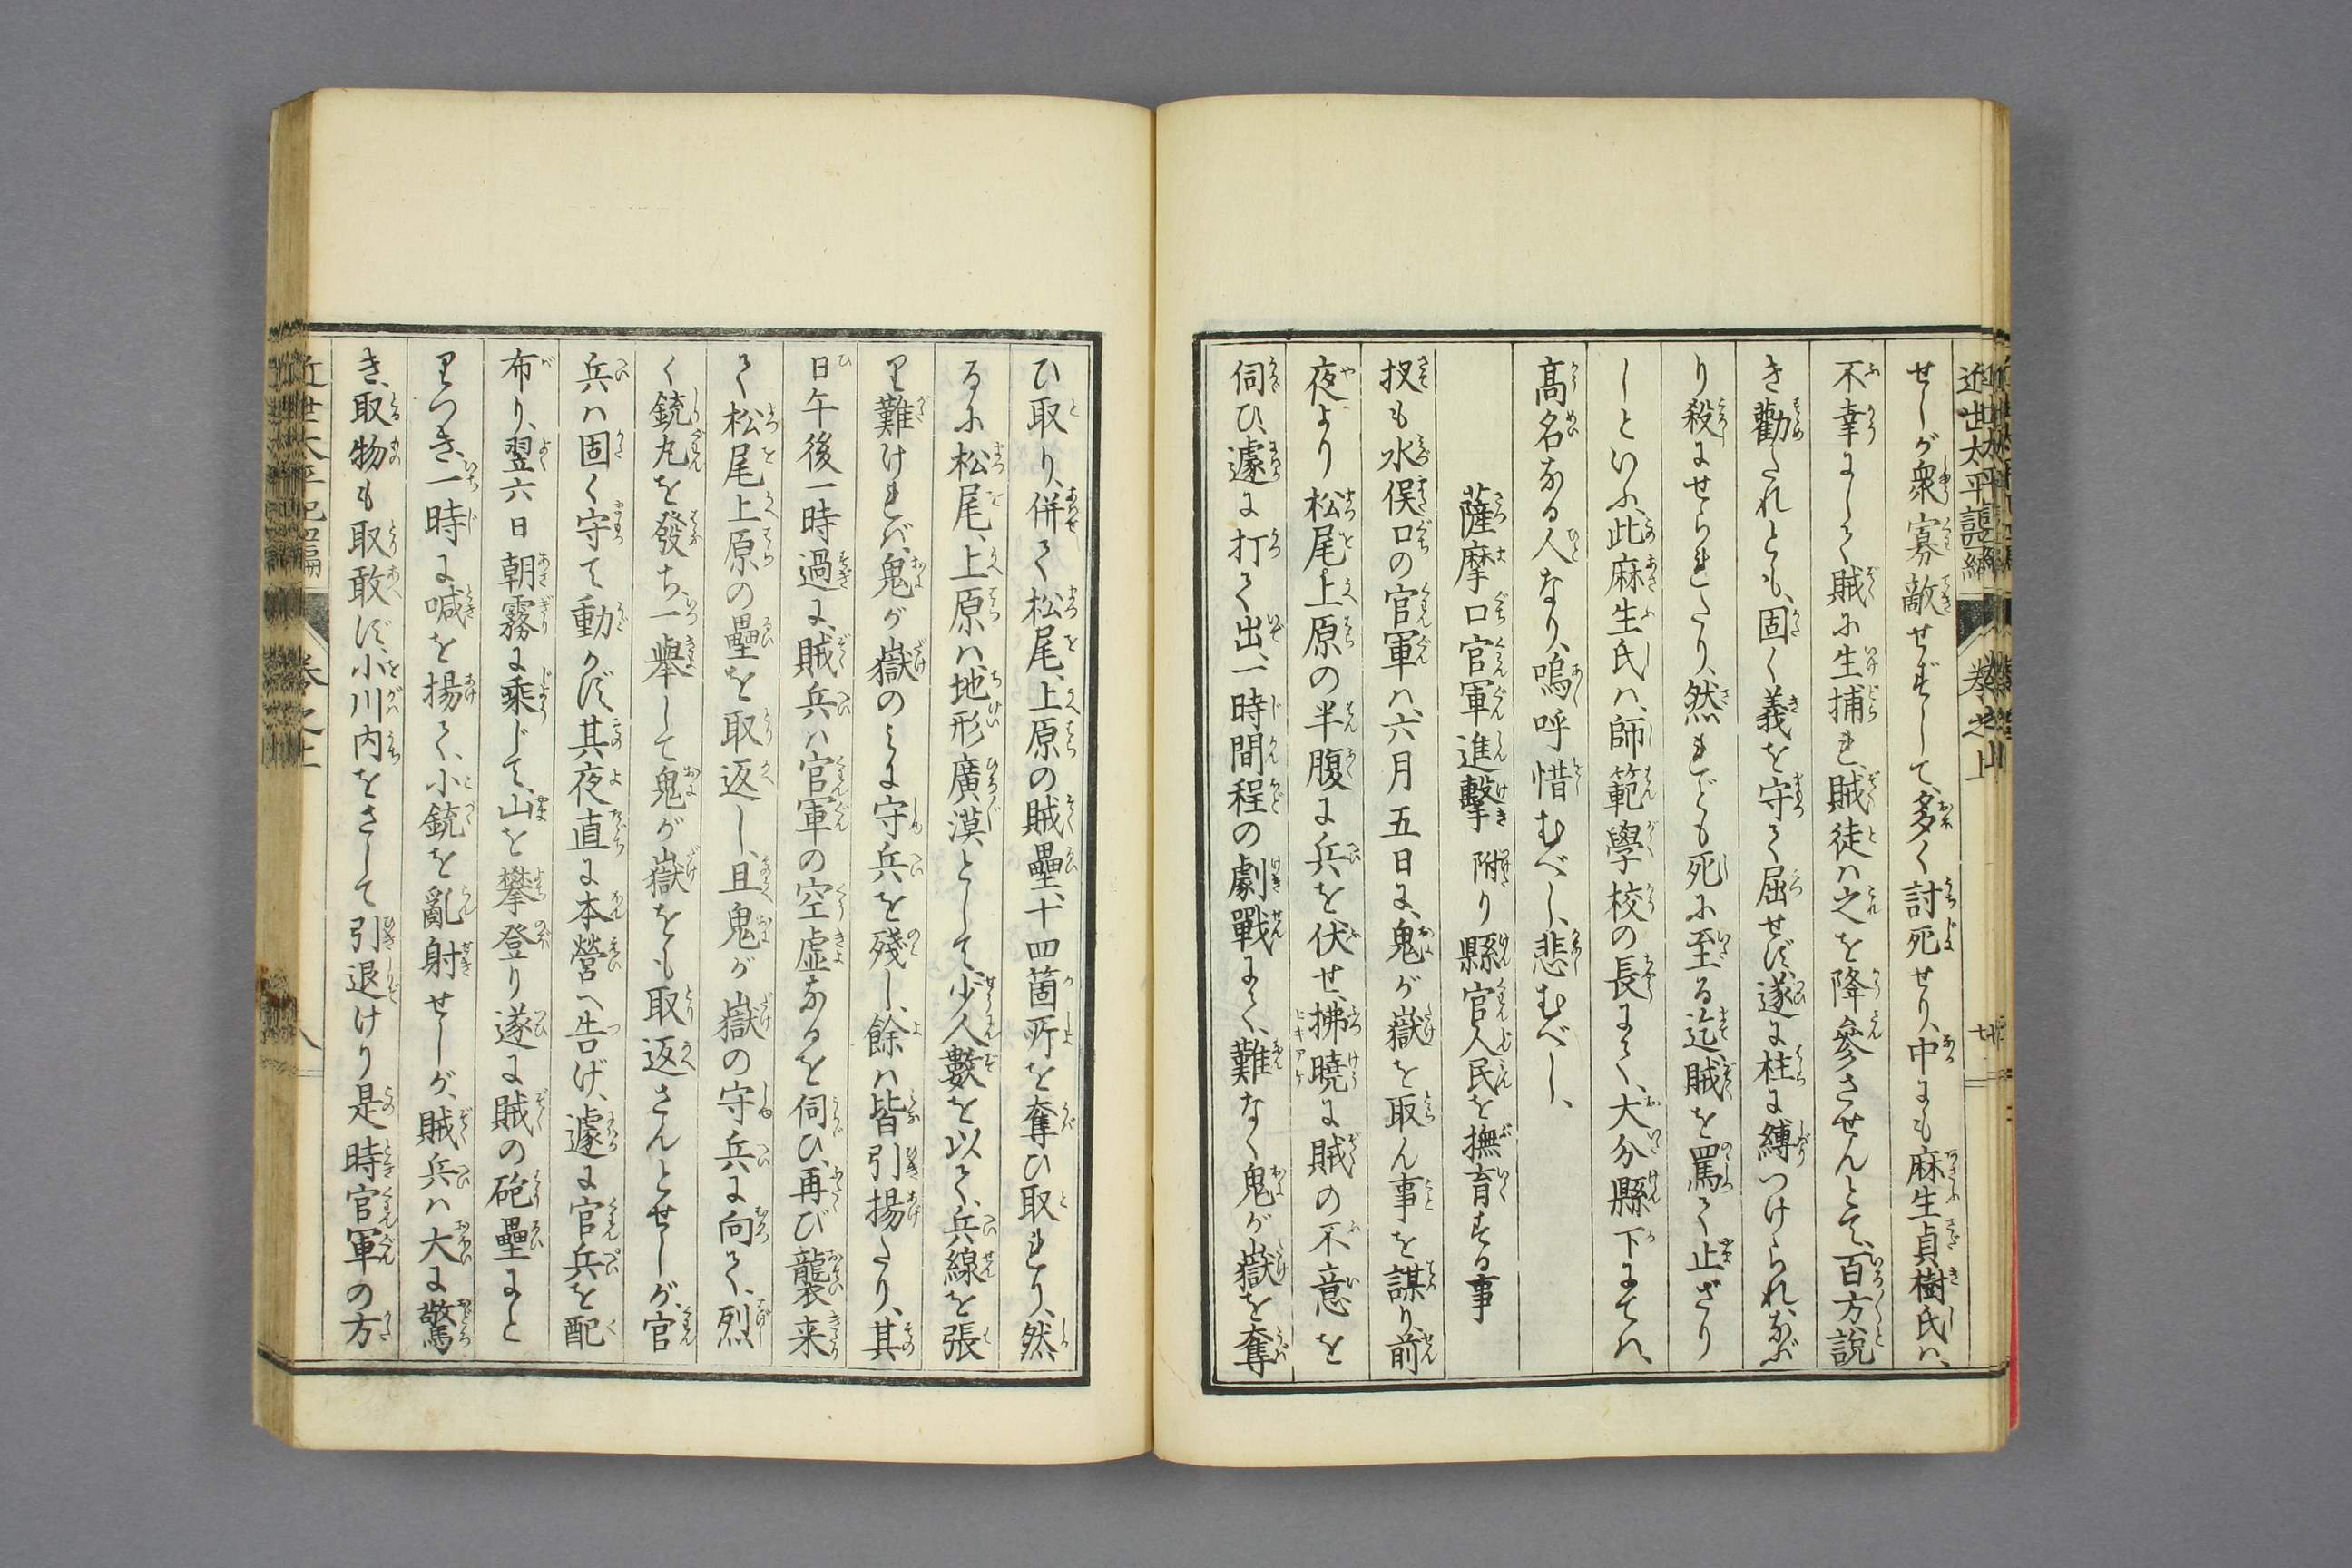 せしが衆寡敵せずして、多く討死せり、中にも麻生貞樹氏ハ、
不幸にして賊に生捕れ、賊徒ハ之を降參させんとて、百方説
き勸たれとも、固く義を守て屈せず、遂に柱に縛つけられ、なぶ
り殺にせられたり、然れども死に至る迄、賊を罵て止ざり
しといふ、此麻生氏ハ、師範學校の長にて、大分縣下にてハ、
髙名なる人なり、嗚呼惜むべし、悲むべし、
薩摩口官軍進擊附り縣官人民を撫育する事
扨も水俣口の官軍ハ、六月五日に、鬼が嶽を取ん事を謀り、前
夜より松尾上原の半腹に兵を伏せ、拂曉に賊の不意を
伺ひ、遽に打て出、一時間程の劇戰にて、難なく鬼が嶽を奪
ひ取り、併て松尾、上原の賊壘、十四箇所を奪ひ取れり、然
るに松尾、上原ハ、地形廣漠として、少人數を以て、兵線を張
り難けれバ、鬼が嶽のミに守兵を殘し、餘ハ皆引揚たり、其
日午後一時過に、賊兵ハ官軍の空虚なるを伺ひ、再び襲来
て松尾上原の壘を取返し、且鬼が嶽の守兵に向て、烈し
く銃丸を發ち、一擧して鬼が嶽をも取返さんとせしが、官
兵ハ固く守て動かず、其夜直に本營へ告げ、遽に官兵を配
布り、翌六日朝霧に乘じて、山を攀登り遂に賊の砲壘にと
りつき、一時に喊を揚て、小銃を亂射せしが、賊兵ハ大に驚
き、取物も取敢ず、小川内をさして引退けり是時官軍の方